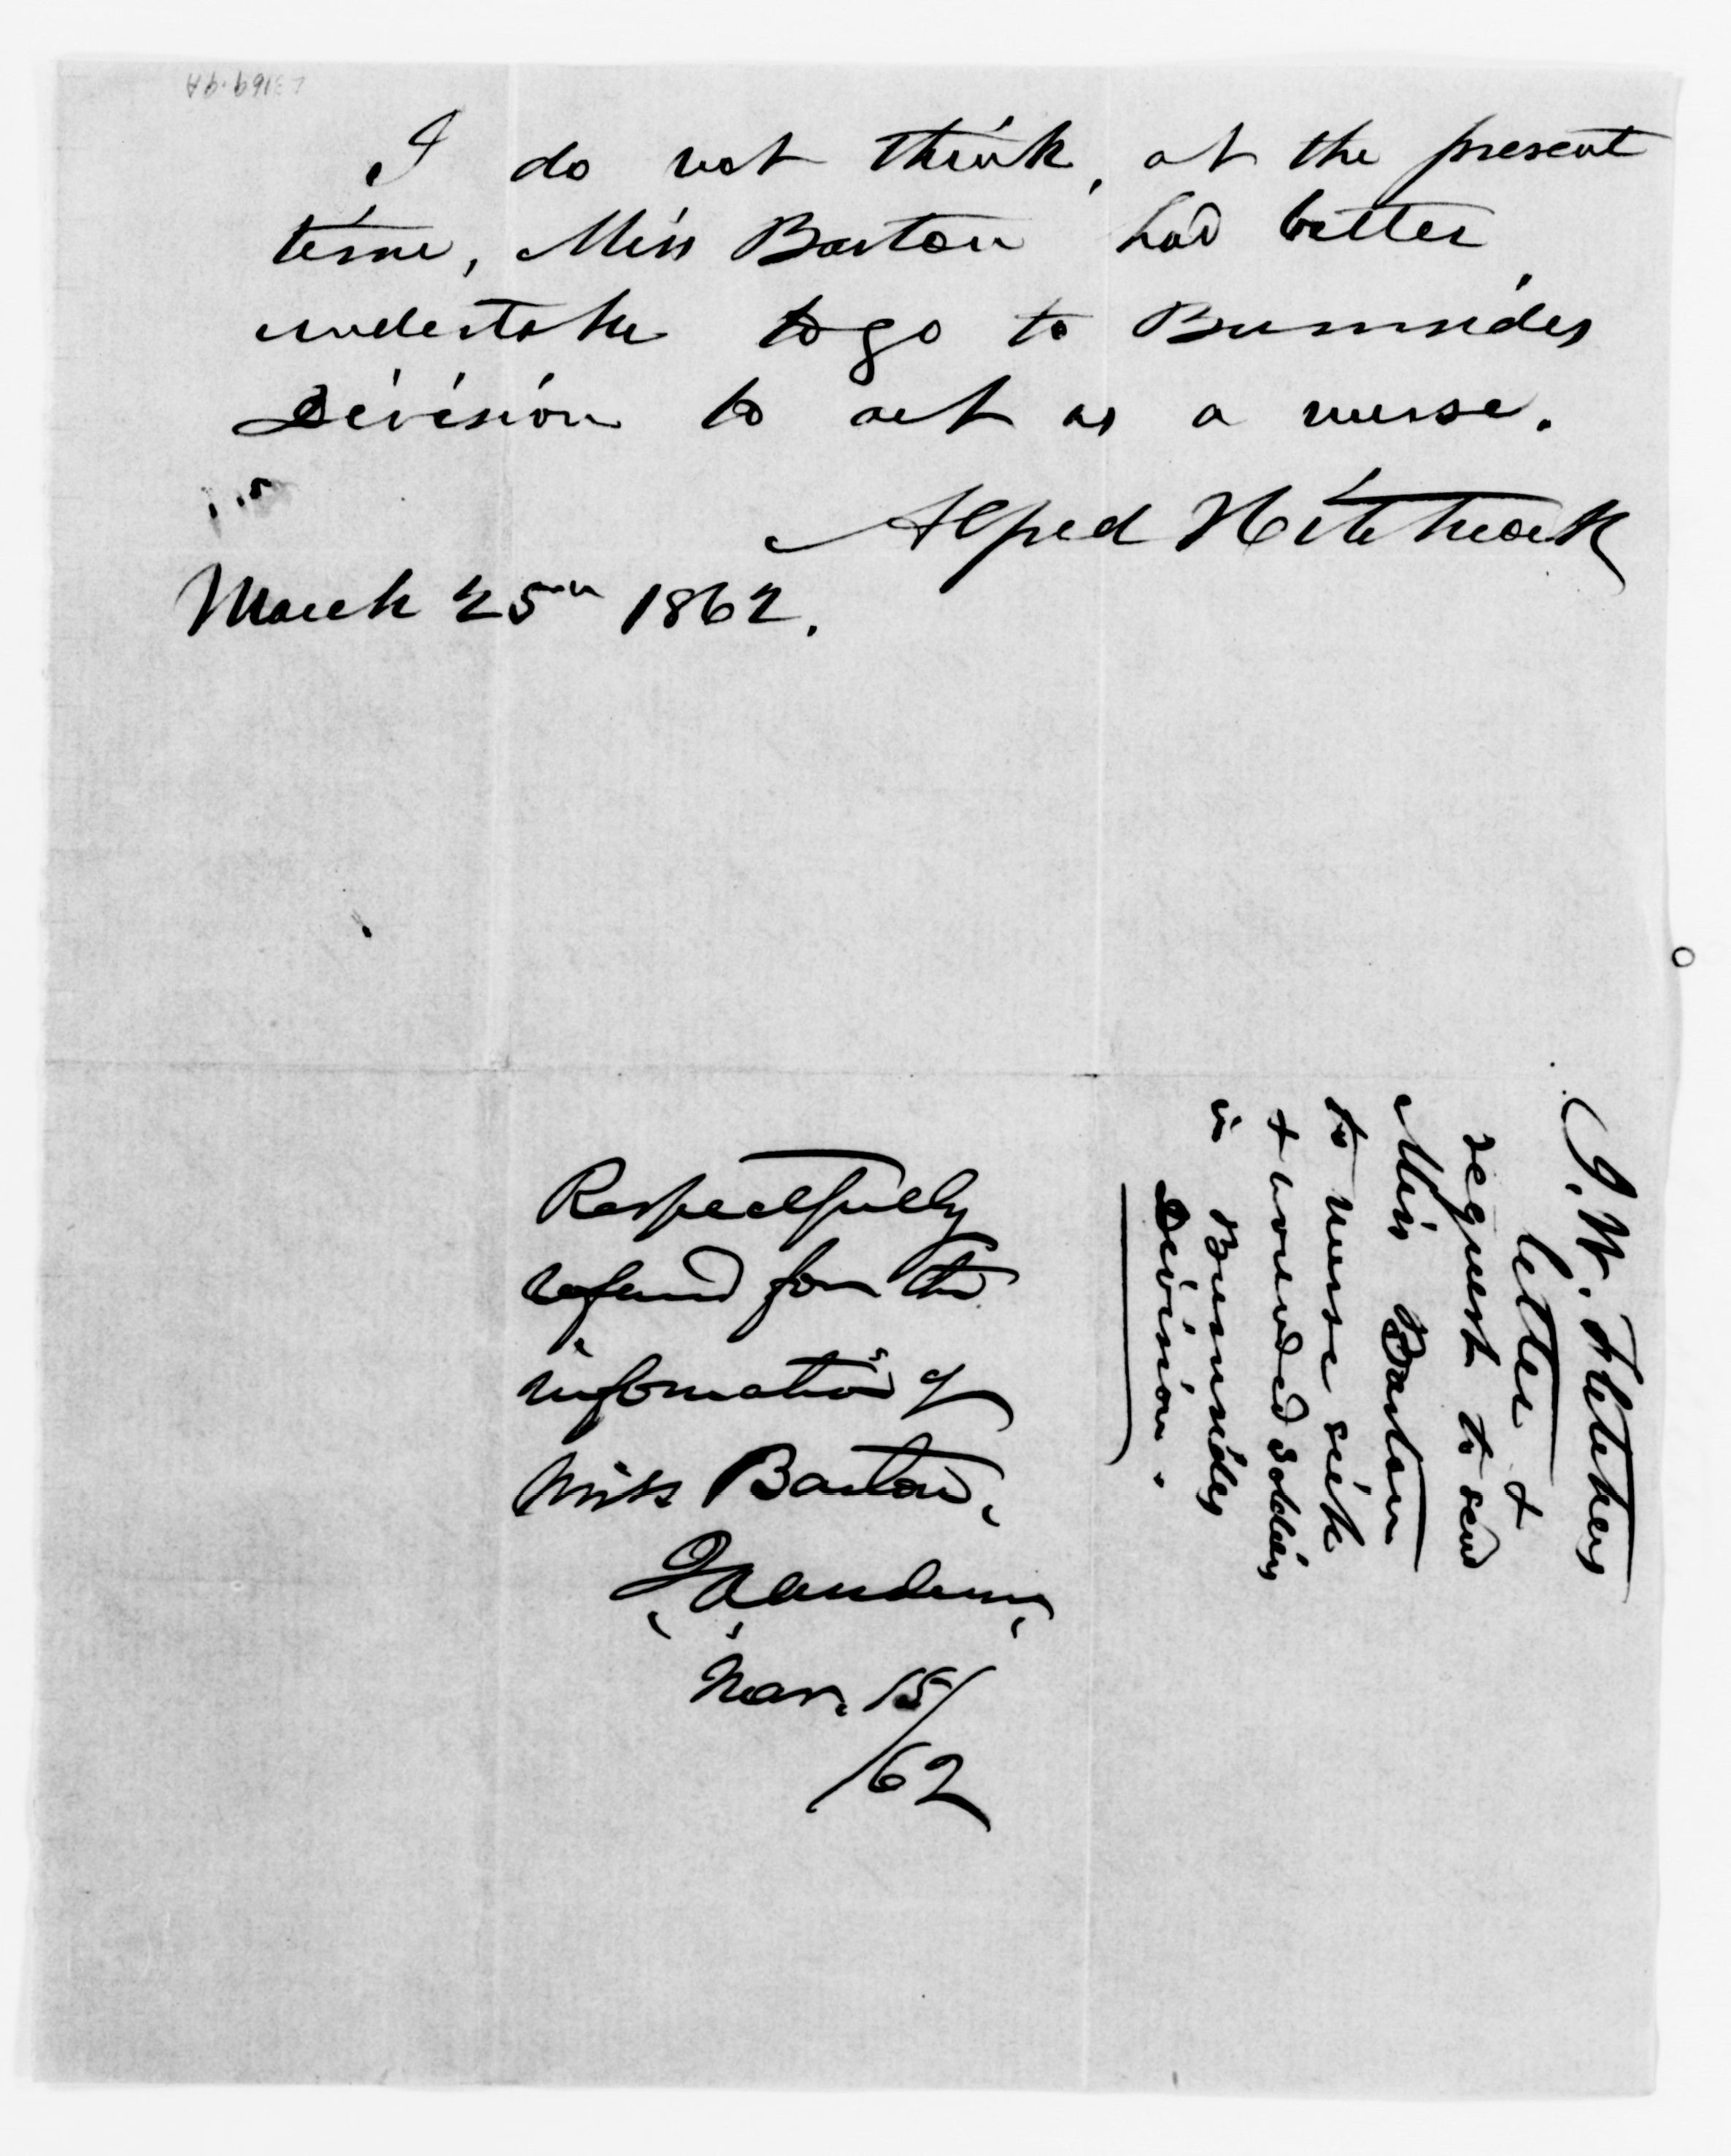 I do not think, at the present
time, Miss Barton had better
undertake to go to Burnsides
Division to act as a nurse.
Alfred Hitchcock
March 25th 1862.
J. W. Fletchers
letter &
request to send
Miss Barton
to nurse sick
& wounded soldiers
in Burnsides
Division.
Respectfully
referred for the
information of
Miss Barton.
J. A. Andrew.
Mar. 15/
/62